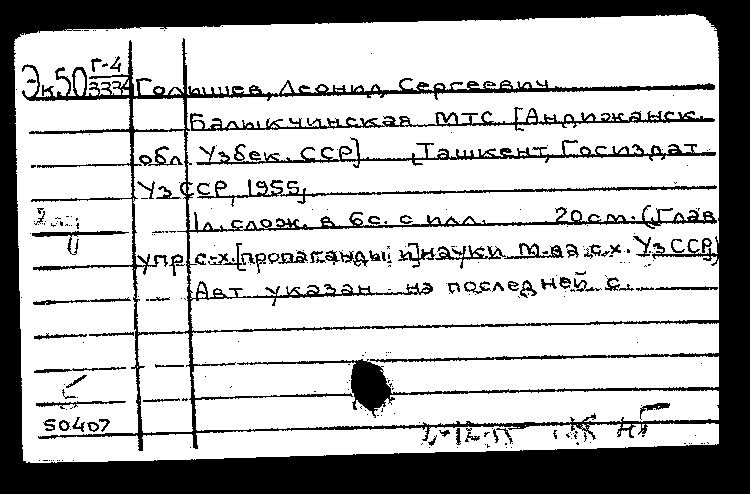 Эк50 Г-4/3334 Голышев, Леонид Сергеевич
Балыкчинская МТС [Андижанск.
обл. Узбек. ССР] [Ташкент, Госиздат
УзССР, 1955]
1л. слож. в 6с. с илл. 20см. (Глав
упр с-х. [пропаганды и] науки М-ва с.х. УзССР)
Авт указан на последней с.
5
50407